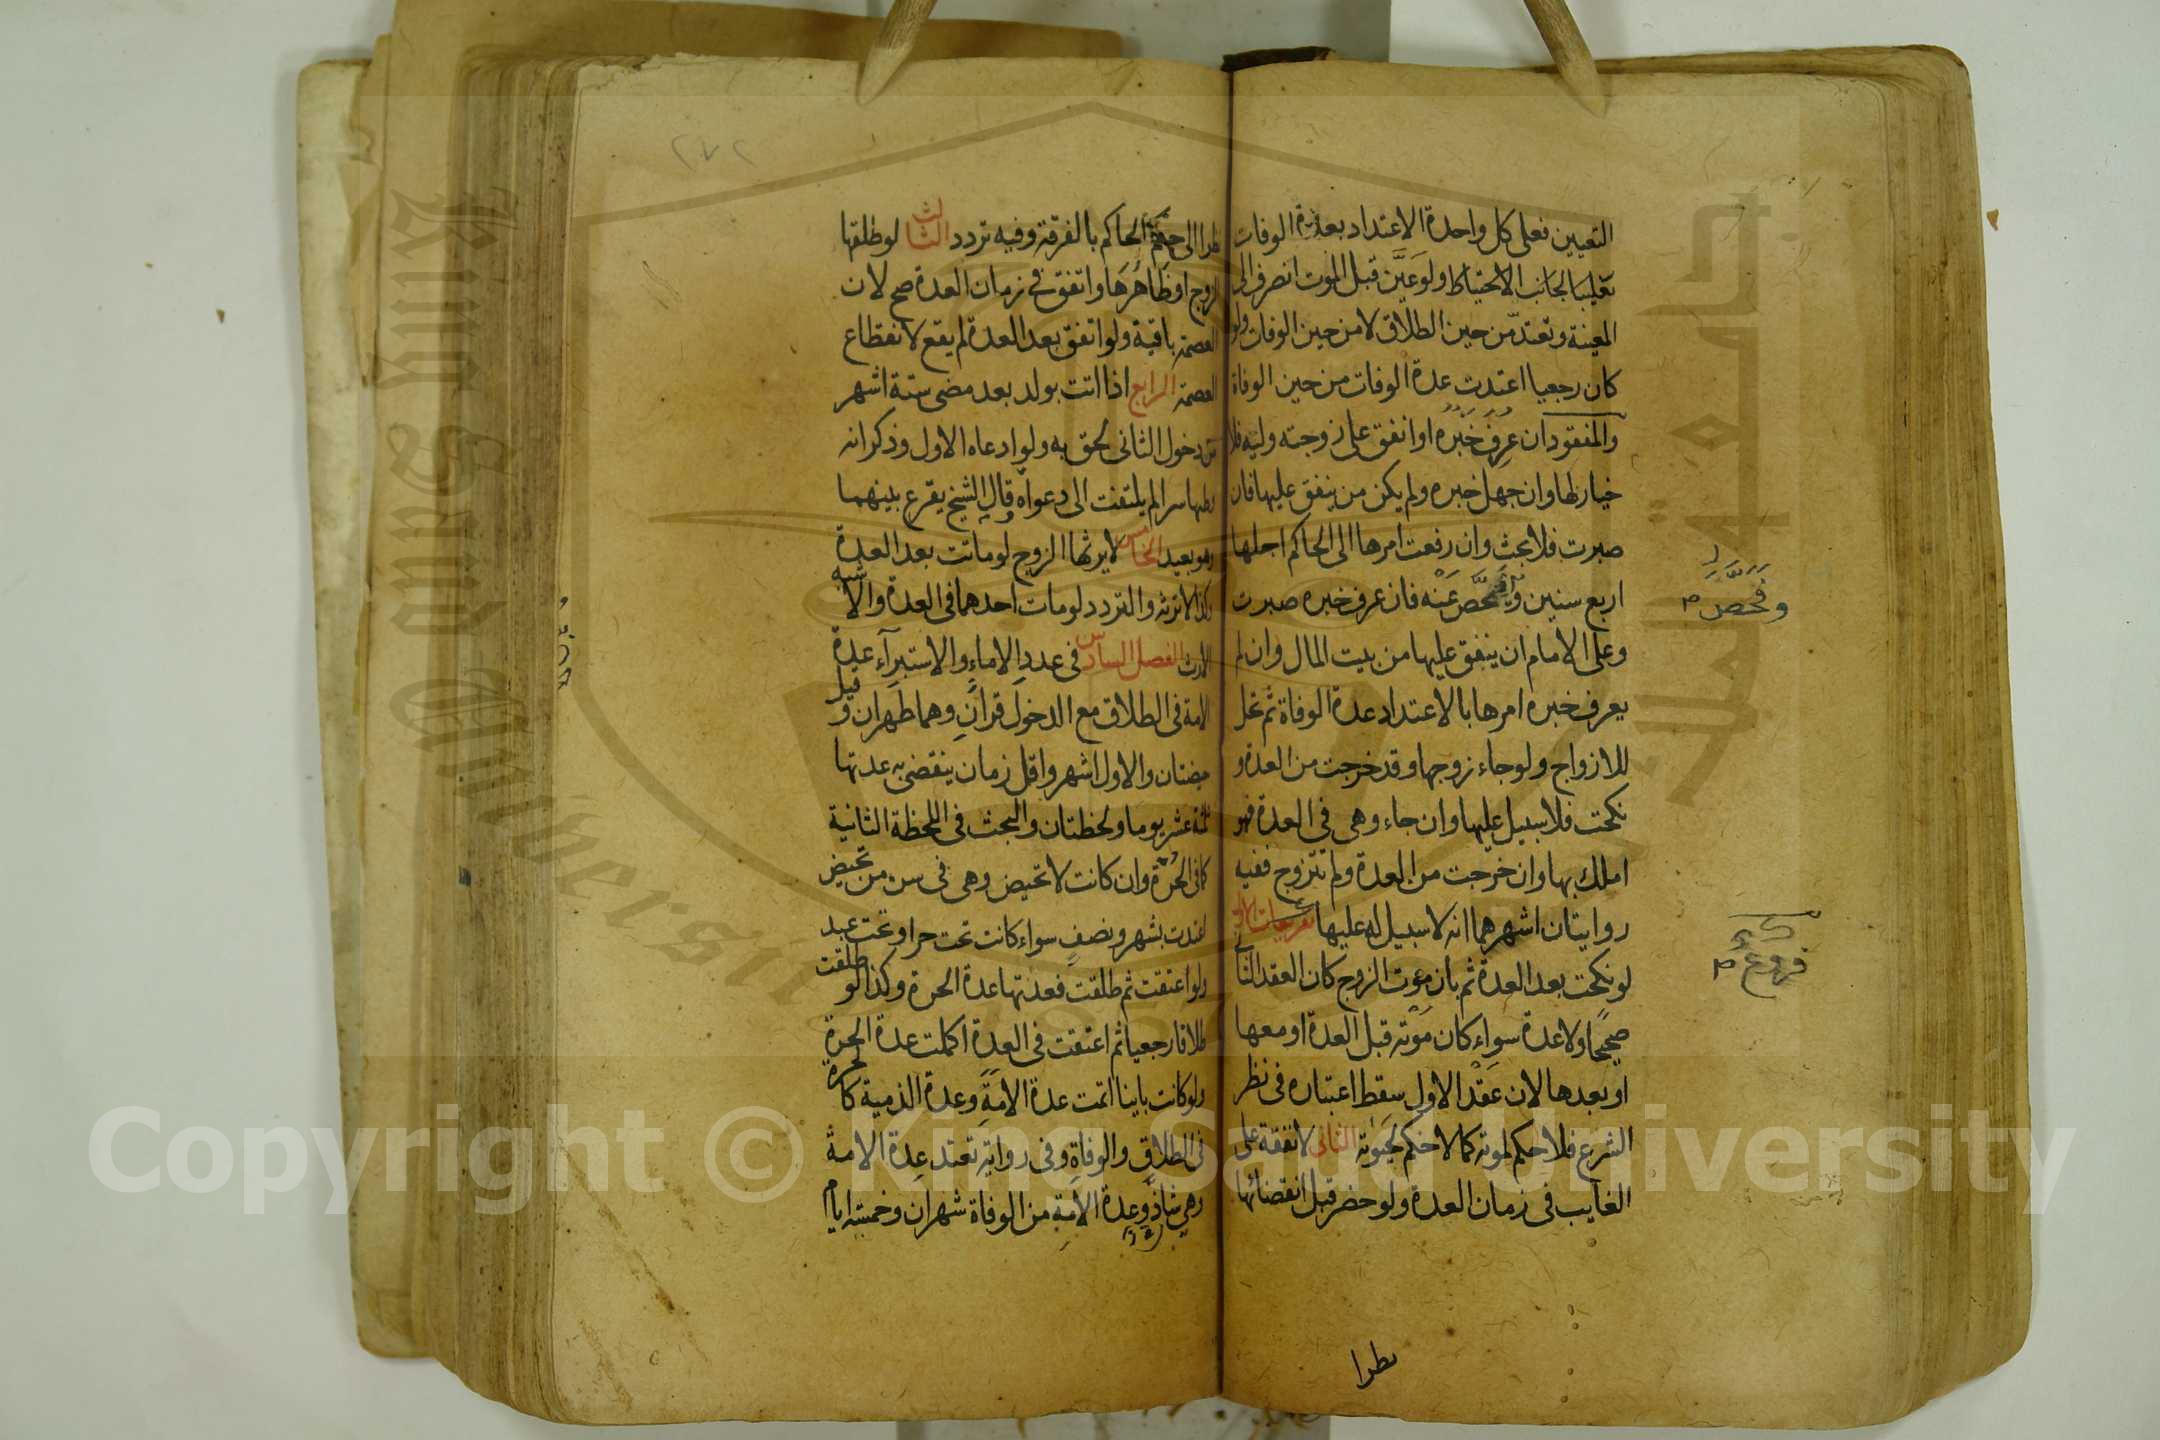 التعيين فعلى كل واحدة الاعتداد بعدة الوفات
تغليبا لجانب الاحتياط ولو عَيَّن قبل الموت انصرف الى
المعينة وتعتد من حين الطلاق لا من حين الوفات ولو
كان رجعيا اعتدت عدة الوفات من حين الوفاة
والمفقود ان عُرِفَ خَبَرُه او انفق على زوجته وليه فلا
خيار لها وان جهل خبره ولم يكن من ينفق عليها فان
صبرت فلا بحث وان رفعت امرها الى الحاكم اجلها
اربع سنين ويفحص عنه فان عرف خبره صبرت
وعلى الامام ان ينفق عليها من بيت المال وان لم
يعرف خبره امرها بالاعتداد عدة الوفاة ثم تحل
للازواج ولو جاء زوجها وقد خرجت من العدة و
نكحت فلا سبيل عليها وان جاء وهي في العدة فهو
املك بها وان خرجت من العدة ولم تتزوج ففيه
روايتان اشهرهما انه لا سبيل له عليها تفريعات الاول
لو نكحت بعد العدة ثم بان موت الزوج كان العقد الثاني
صحيحا ولا عدة سواء كان موته قبل العدة او معها
او بعدها لان عقد الاول سقط اعتباره في نظر
الشرع فلا حكم لموته كما لا حكم لحيوته الثاني لا نفقة على
الغايب في زمان العدة ولو حضر قبل انقضائها
نظرا
وفحص
فروع
٢٧٢
نظرا الى حكم الحاكم بالفرقة وفيه تردد الثالث لو طلقها
الزوج او ظاهرها واتفق في زمان العدة صح لان
العصمة باقية ولو اتفق بعد العدة لم يقع لانقطاع
العصمة الرابع اذا اتت بولد بعد مضى ستة اشهر
من دخول الثانى لحق به ولو ادعاه الاول وذكر انه
وطيها سرا لم يلتفت الى دعواه وقال الشيخ يقرع بينهما
وهو بعيد الخامس لا يرثها الزوج لو ماتت بعد العدة
وكذا لا ترثه والتردد لو مات احدهما في العدة والاشبه
الارث الفصل السادس في عدد الاماء والاستبرآء عدة
الامة في الطلاق مع الدخول قرآن وهما طهران وقيل
حيضتان والاول اشهر واقل زمان ينقضي به عدتها
ثلثة عشر يوما ولحظتان والبحث في اللحظة الثانية
كما في الحرة وان كانت لا تحيض وهي في سن من تحيض
اعتدت بشهر ونصف سواء كانت تحت حر او تحت عبد
ولو اعتقت ثم طلقت فعدتها عدة الحرة وكذا لو طلقت
طلاقا رجعيا ثم اعتقت في العدة اكملت عدة الحرة
ولو كانت باينا اتمت عدة الامة وعدة الذمية كالحرة
في الطلاق والوفاة وفي رواية تعتد عدة الامة
وهي شاذة وعدة الامة من الوفاة شهران وخمسة ايام
King Saud University
جامعة الملك سعود
1957
Copyright © King Saud University